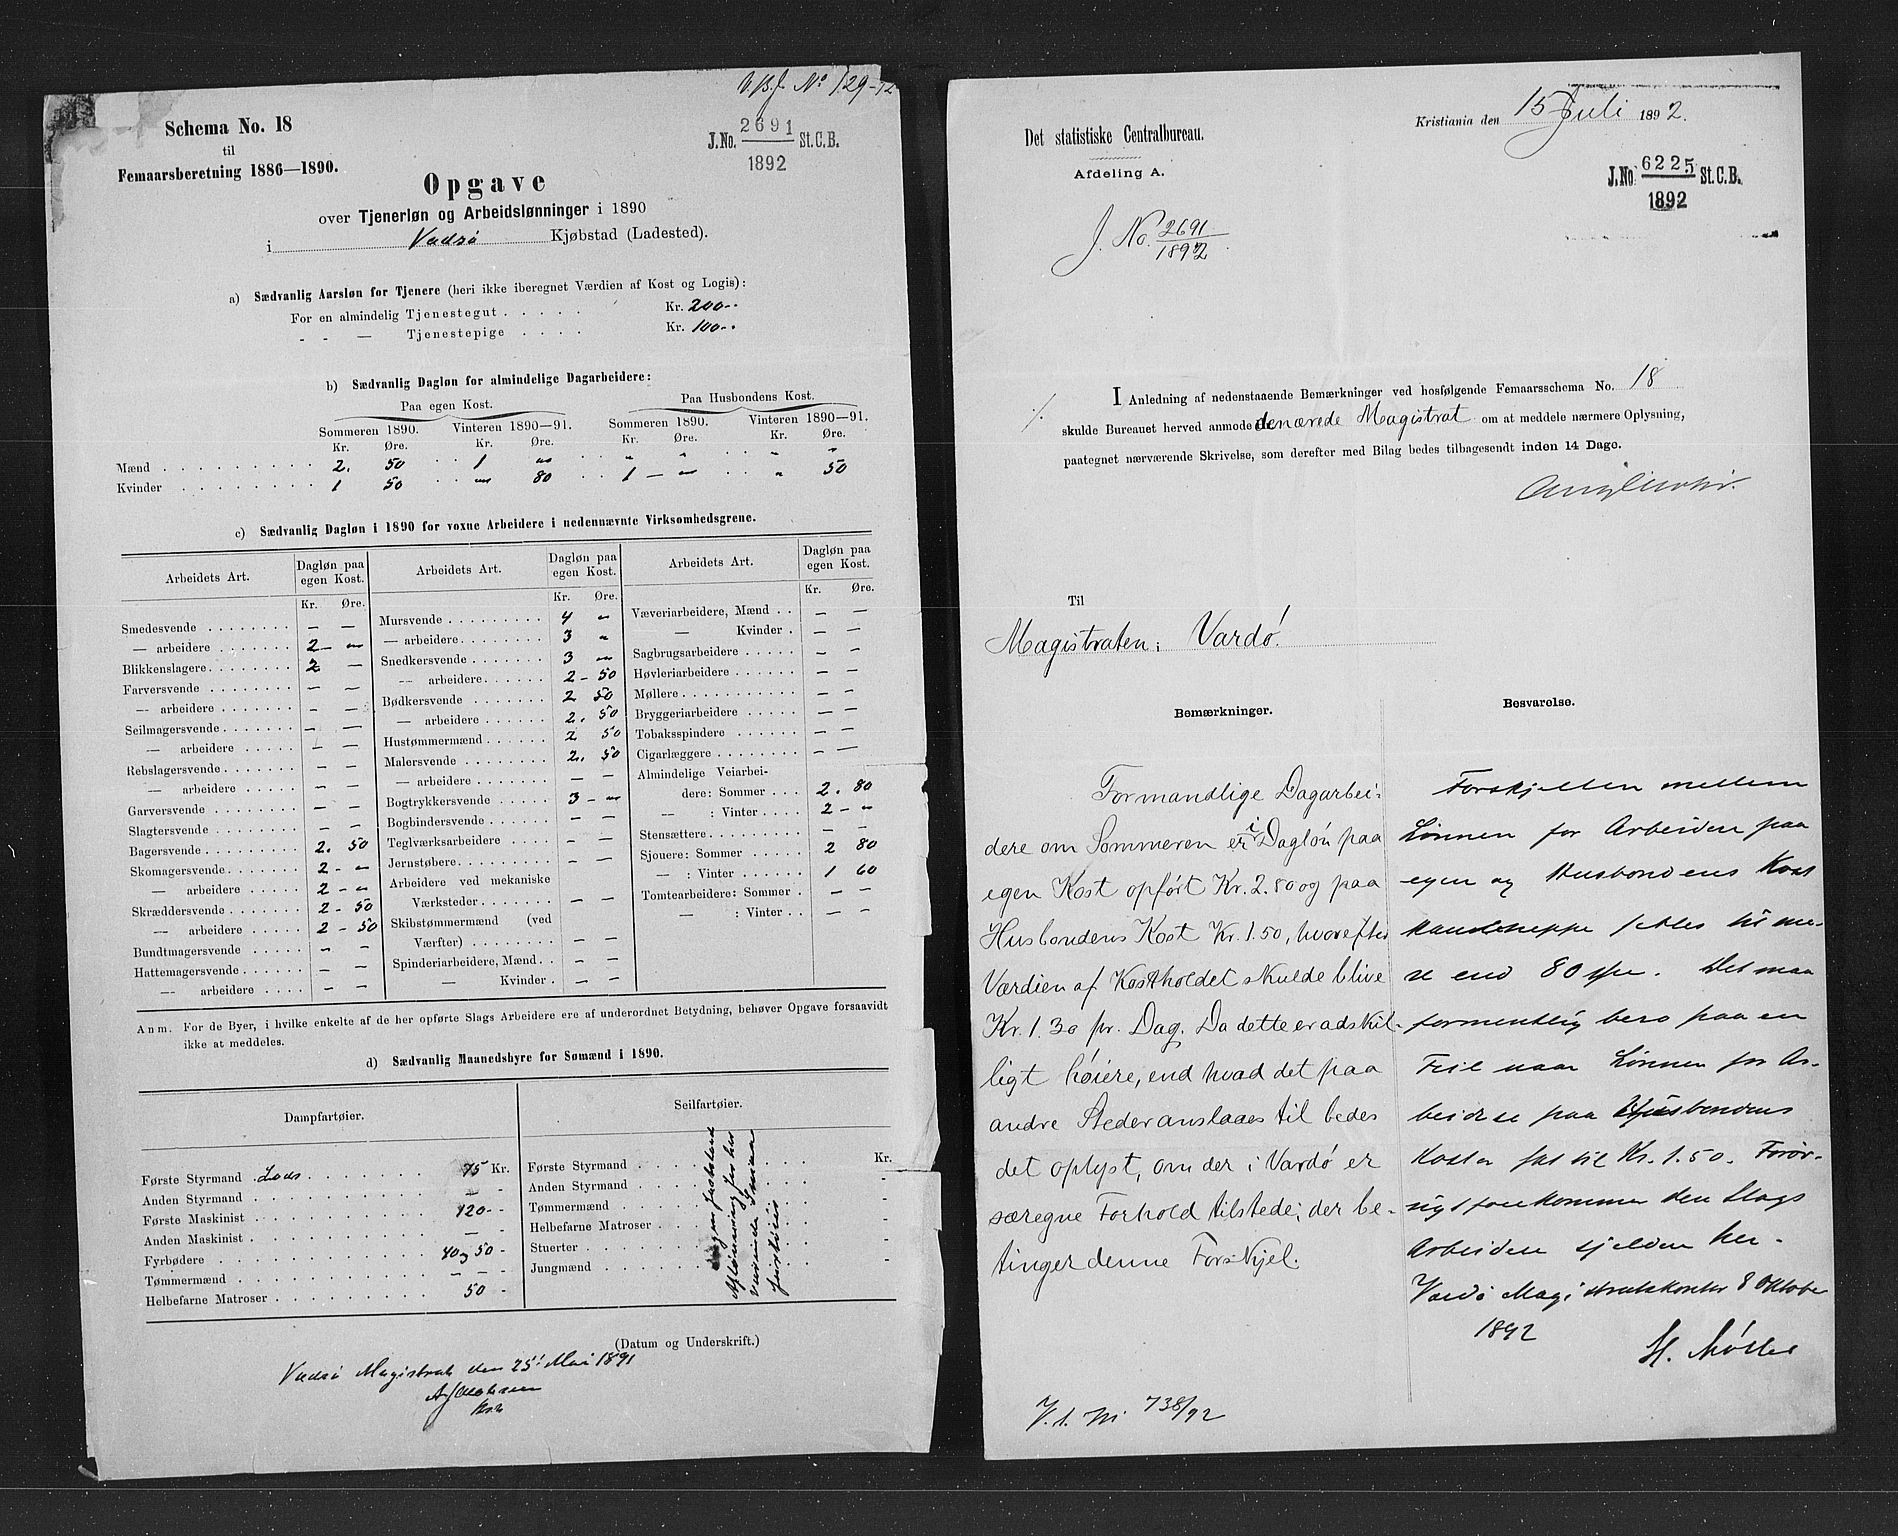 V.B.J. No 129-12
Schema No. 18
til
Femaarsberetning 1886—1890.
J.No. 2691 St.C.B.
1892
Opgave
over Tjenerløn og Arbeidslønninger i 1890
i Vadsø Kjøbstad (Ladested).
a) Sædvanlig Aarsløn for Tjenere (heri ikke iberegnet Værdien af Kost og Logis):
For en almindelig Tjenestegut . . . . . Kr. 200--
- - — Tjenestepige . . . . Kr. 100--
b) Sædvanlig Dagløn for almindelige Dagarbeidere:
Paa egen Kost. Paa Husbondens Kost.
Sommeren 1890. Vinteren 1890—91. Sommeren 1890. Vinteren 1890—91.
Kr. Øre. Kr. Øre. Kr. Øre. Kr. Øre.
Mænd . . . . . . . . . 2. 50 1 " " " " "
Kvinder . . . . . . . . 1 50 " 80 1 — " " 50
c) Sædvanlig Dagløn i 1890 for voxne Arbeidere i nedennævnte Virksomhedsgrene.
Arbeidets Art. Dagløn paa egen Kost.
Kr. Øre.
Smedesvende — —
— arbeidere 2 - "
Blikkenslagere 2 —
Farversvende — —
— arbeidere — —
Seilmagersvende — —
— arbeidere — —
Rebslagersvende — —
— arbeidere — —
Garversvende — —
Slagtersvende — —
Bagersvende 2. 50
Skomagersvende 2 - "
— arbeidere 2 - "
Skræddersvende 2 - 50
— arbeidere 2 - 50
Bundtmagersvende — —
Hattemagersvende — —
— arbeidere — —
Arbeidets Art. Dagløn paa egen Kost.
Kr. Øre.
Mursvende 4 "
— arbeidere 3 "
Snedkersvende 3 "
— arbeidere 2 - 50
Bødkersvende 2 50
— arbeidere 2. 50
Hustømmermænd 2 50
Malersvende 2. 50
— arbeidere — —
Bogtrykkersvende 3 - "
Bogbindersvende — —
Teglværksarbeidere — —
Jernstøbere — —
Arbeidere ved mekaniske
Værksteder — —
Skibstømmermænd (ved
Værfter) — —
Spinderiarbeidere, Mænd — —
— Kvinder — —
Arbeidets Art. Dagløn paa egen Kost.
Kr. Øre.
Væveriarbeidere, Mænd — —
— Kvinder — —
Sagbrugsarbeidere — —
Høvleriarbeidere — —
Møllere — —
Bryggeriarbeidere — —
Tobaksspindere — —
Cigarlæggere — —
Almindelige Veiarbei-
dere: Sommer 2. 80
— : Vinter 2 - "
Stensættere — —
Sjouere: Sommer 2 80
— : Vinter 1 60
Tomtearbeidere: Sommer — —
— : Vinter — —
Anm. For de Byer, i hvilke enkelte af de her opførte Slags Arbeidere ere af underordnet Betydning, behøver Opgave forsaavidt
ikke at meddeles.
d) Sædvanlig Maanedshyre for Sømænd i 1890.
Dampfartøier.
Første Styrmand Lods 75 Kr.
Anden Styrmand — -
Første Maskinist 120- -
Anden Maskinist — -
Fyrbødere 40 à 50 -
Tømmermænd — -
Helbefarne Matroser 50 -
Seilfartøier.
Kr.
Første Styrmand -
Anden Styrmand -
Tømmermænd -
Helbefarne Matroser -
Stuerter -
Jungmænd -
Ingen fastslaaed
Aflønning for her
fartøier
(Datum og Underskrift.)
Vadsø Magistrat den 25' Mai 1891
Det statistiske Centralbureau.
Afdeling A.
Kristiania den 15 Juli 1892.
J.No. 6225 St.C.B.
1892
J. No. 2691
1892
I Anledning af nedenstaaende Bemærkninger ved hosfølgende Femaarsschema No. 18
skulde Bureauet herved anmode den ærede Magistrat om at meddele nærmere Oplysning,
paategnet nærværende Skrivelse, som derefter med Bilag bedes tilbagesendt inden 14 Dage.
Til
Magistraten i Vardø.
Bemærkninger.
For mandlige Dagarbei-
dere om Sommeren er i Dagløn paa
egen Kost opført Kr. 2.80 og paa
Husbondens Kost Kr. 1.50, hvorefter
Værdien af Kostholdet skulde blive
Kr. 1.30 pr. Dag. Da dette er adskil-
ligt høiere, end hvad det paa
andre Steder anslaaes til bedes
det oplyst, om der i Vardø er
særegne Forhold tilstede, der be-
tinger denne Forskjel.
Besvarelse.
Forskjellen mellem
Lønnen for Arbeidere paa
egen og Husbondens Kost
kan neppe sættes til me-
re end 80 Øre. Det maa
formentlig bero paa en
Feil naar Lønnen for Ar-
beidere paa Husbondens
Kost er sat til Kr. 1.50. Forøv-
rigt forekommer den Slags
Arbeidere sjelden her.
Vardø Magistratskontor 8 Oktober
1892
H. Møller
V. J. N. 738/92